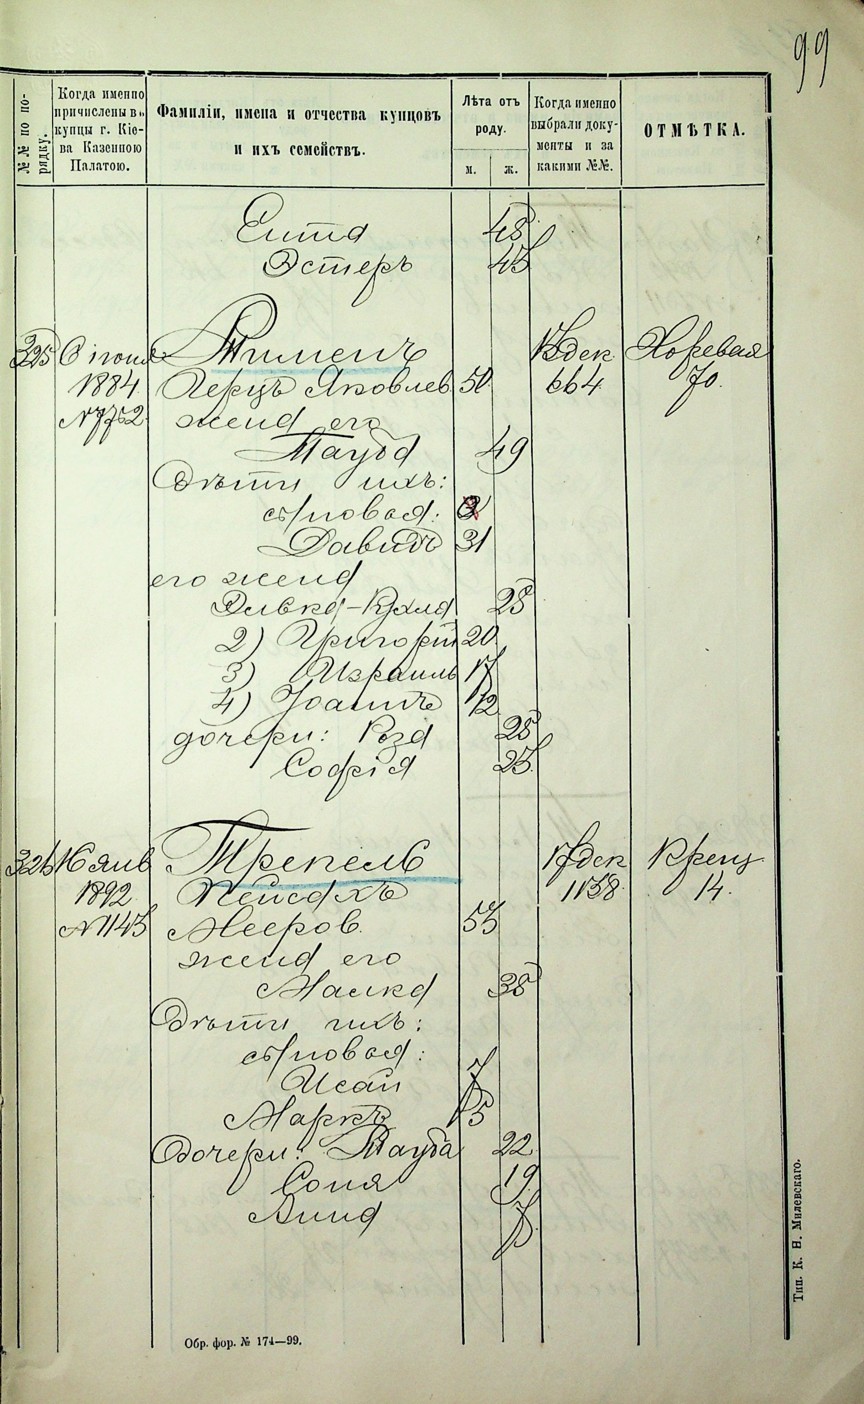 99
№№ по по-
рядку.
Когда именно
причислены въ
купцы г. Кіе-
ва Казенною
Палатою.
Фамиліи, имена и отчества купцовъ
и ихъ семействъ.
Лѣта отъ
роду.
м. ж.
Когда именно
выбрали доку-
менты и за
какими №№.
ОТМѢТКА.
Ента 48
Эстеръ 45
325 6 іюня 13 дек Хоревая
1884 Герцъ Яковлев 50 664 70.
№ 7752 жена его
Тауба 49
Дѣти ихъ:
сыновья:
Давидъ 31
его жена
28
2) Григорій 20
3) Израиль 17
4) Іоаннъ 12
дочери: Роза 28
Софія 25
326 16 янв Трепель 17 дек Крещ
1892 Пейсахъ 1158 14.
№ 1145 Мееров. 55
жена его
Малка 38
Дѣти ихъ:
сыновья:
Исай 7
Маркъ 5
Дочери: Тауба 22
Соня 19
Анна 7
Обр. фор. № 174—99.
Тип. К. Н. Милевскаго.